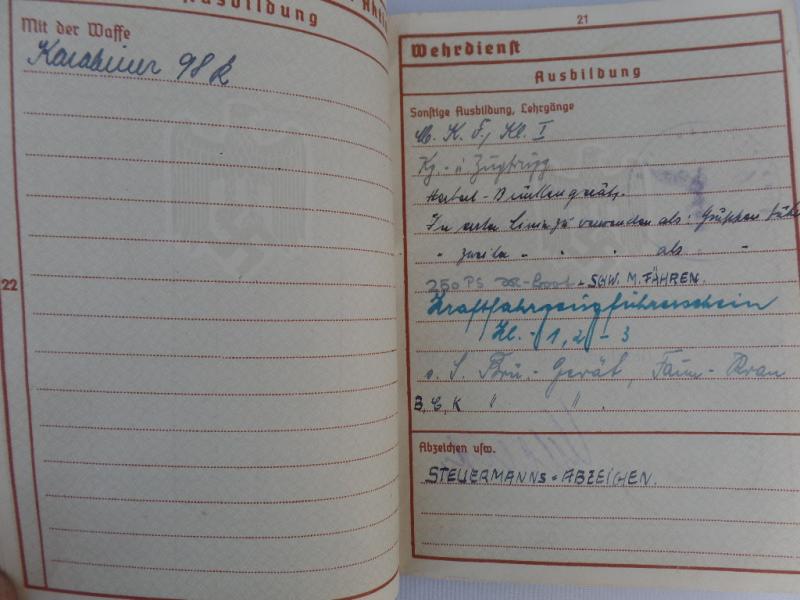 Ausbildung
Mit der Waffe
Karabiner 98 k
22
21
Wehrdienst
Ausbildung
Sonstige Ausbildung, Lehrgänge
M. K. F., Kl. I
Herbert-Brückengerät.
In erster Linie zu verwenden als: Gruppen
" zweiter " " " als "
250 PS - SCHW. M. FÄHREN.
Kraftfahrzeugführerschein
Kl. - 1, 2, - 3
Brü. - Gerät,
B, C, K " " .
Abzeichen usw.
STEUERMANNS = ABZEICHEN.